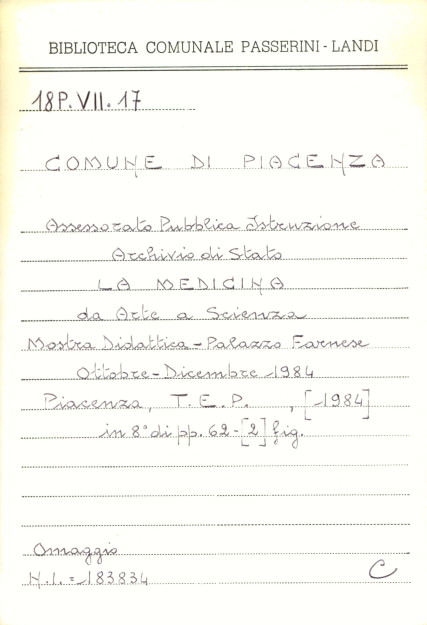 BIBLIOTECA COMUNALE PASSERINI-LANDI
18P.VII.17
COMUNE DI PIACENZA
Assessorato Pubblica Istruzione
Archivio di Stato
LA MEDICINA
da Arte a Scienza
Mostra Didattica-Palazzo Farnese
Ottobre-Dicembre 1984
Piacenza, T.E.P. , [1984]
in 8° di pp. 62-[2] fig.
Omaggio
N.I.=183834
C